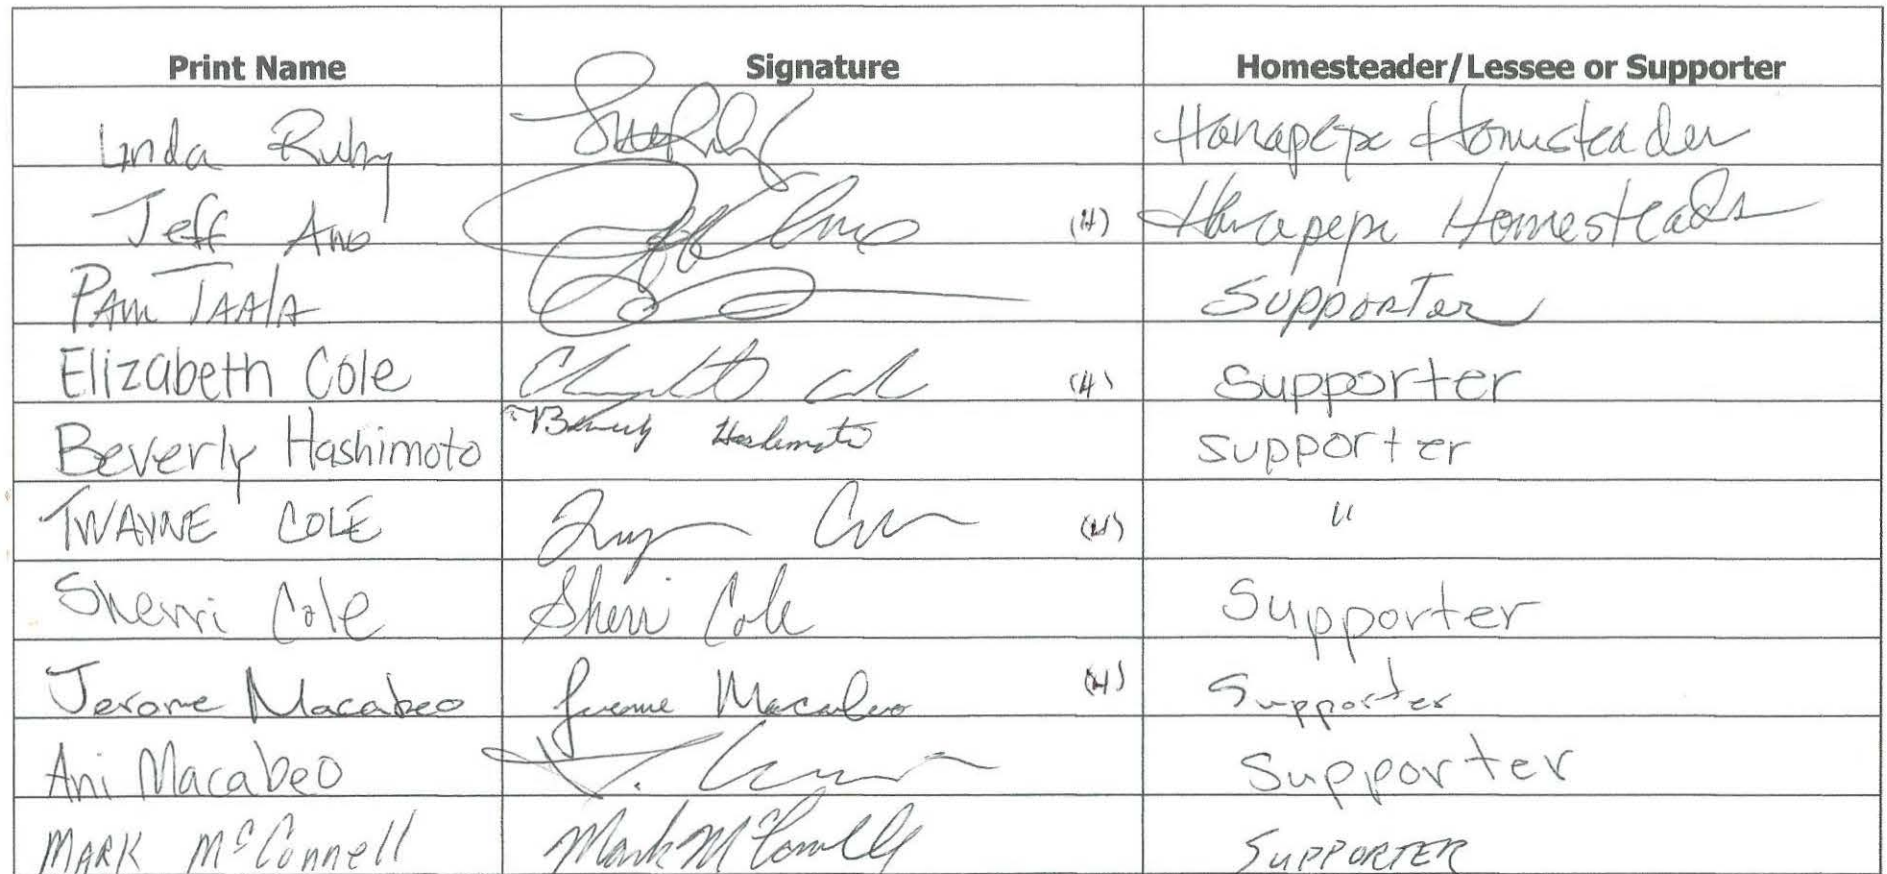 Print Name Signature Homesteader/Lessee or Supporter
Linda Ruby Hanapepe Homesteader
Jeff Ano (H) Hanapepe Homesteads
Pam TAAlA Supporter
Elizabeth Cole (H) Supporter
Beverly Hashimoto Beverly Hashimoto supporter
TWAYNE COLE (H) "
Sherri Cole Sherri Cole Supporter
Jerome Macabeo Jerome Macabeo (H) Supporter
Ani Macabeo Supporter
MARK McConnell Mark McConnell SUPPORTER